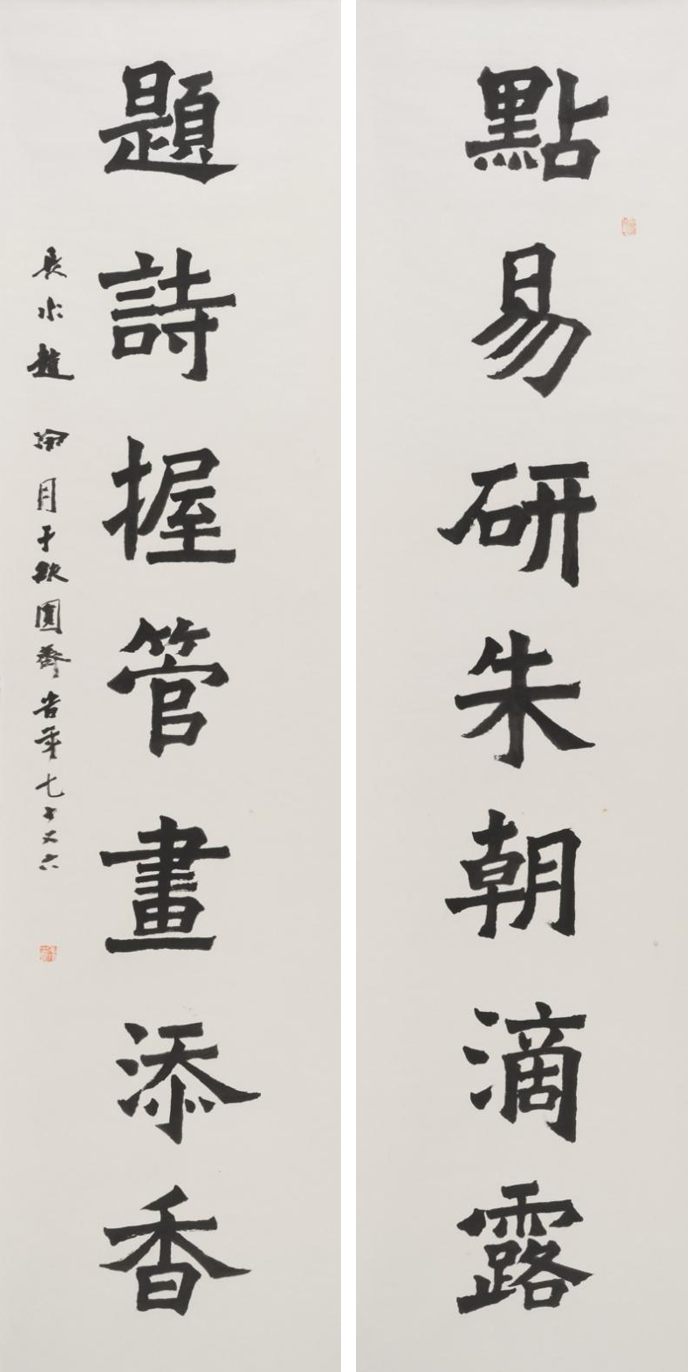 點易研朱朝滴露
題詩握管畫添香
長水趙冷月于缺圓齋旹年七十又六